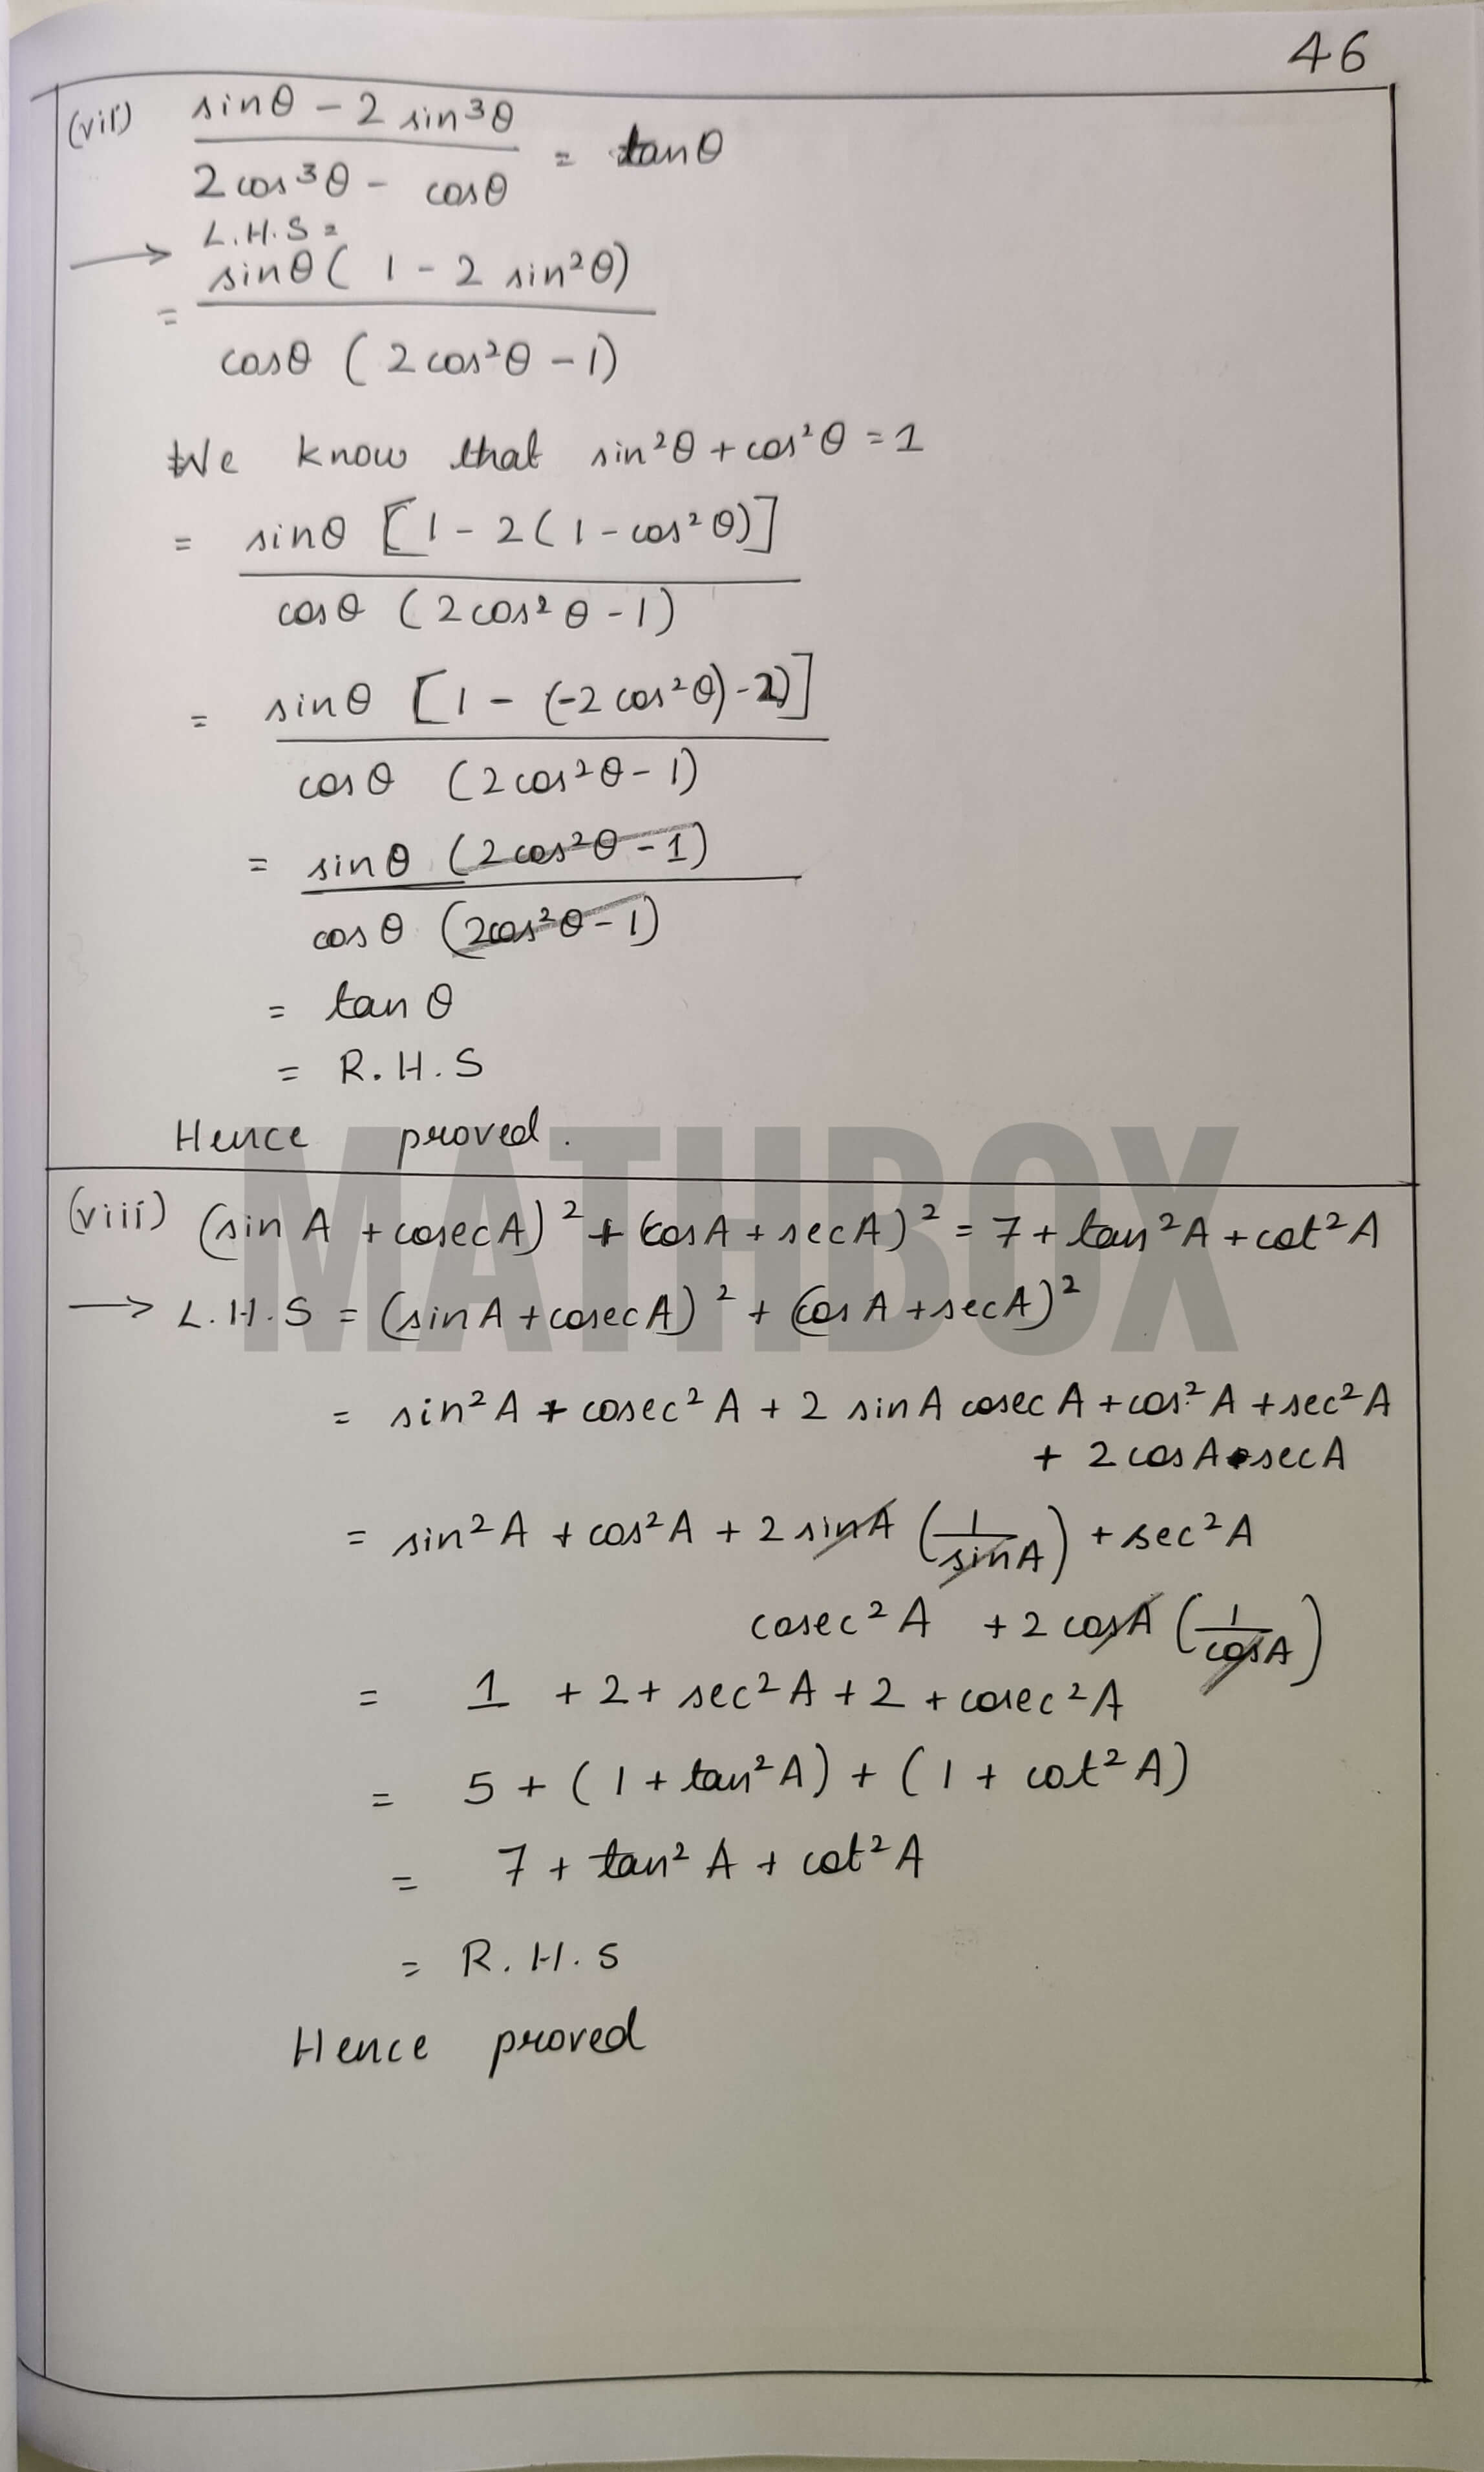 46
(vii) sinθ - 2 sin³θ
2 cos³θ - cosθ = tanθ
L.H.S =
= sinθ ( 1 - 2 sin²θ)
cosθ ( 2 cos²θ - 1)
We know that sin²θ + cos²θ = 1
= sinθ [1 - 2 ( 1 - cos²θ)]
cosθ ( 2 cos²θ - 1)
= sinθ [1 - (-2 cos²θ) - 2)]
cosθ (2 cos²θ - 1)
= sinθ (2 cos²θ - 1)
cosθ (2cos²θ - 1)
= tan θ
= R.H.S
Hence proved.
MATHBOX
(viii) (sin A + cosecA)² + (cosA + secA)² = 7 + tan²A + cot²A
→ L.H.S = (sinA + cosecA)² + (cosA + secA)²
= sin²A + cosec²A + 2 sinA cosecA + cos²A + sec²A
+ 2 cosA • secA
= sin²A + cos²A + 2 sinA (1/sinA) + sec²A
cosec²A + 2 cosA (1/cosA)
= 1 + 2 + sec²A + 2 + cosec²A
= 5 + ( 1 + tan²A) + ( 1 + cot²A)
= 7 + tan²A + cot²A
= R.H.S
Hence proved